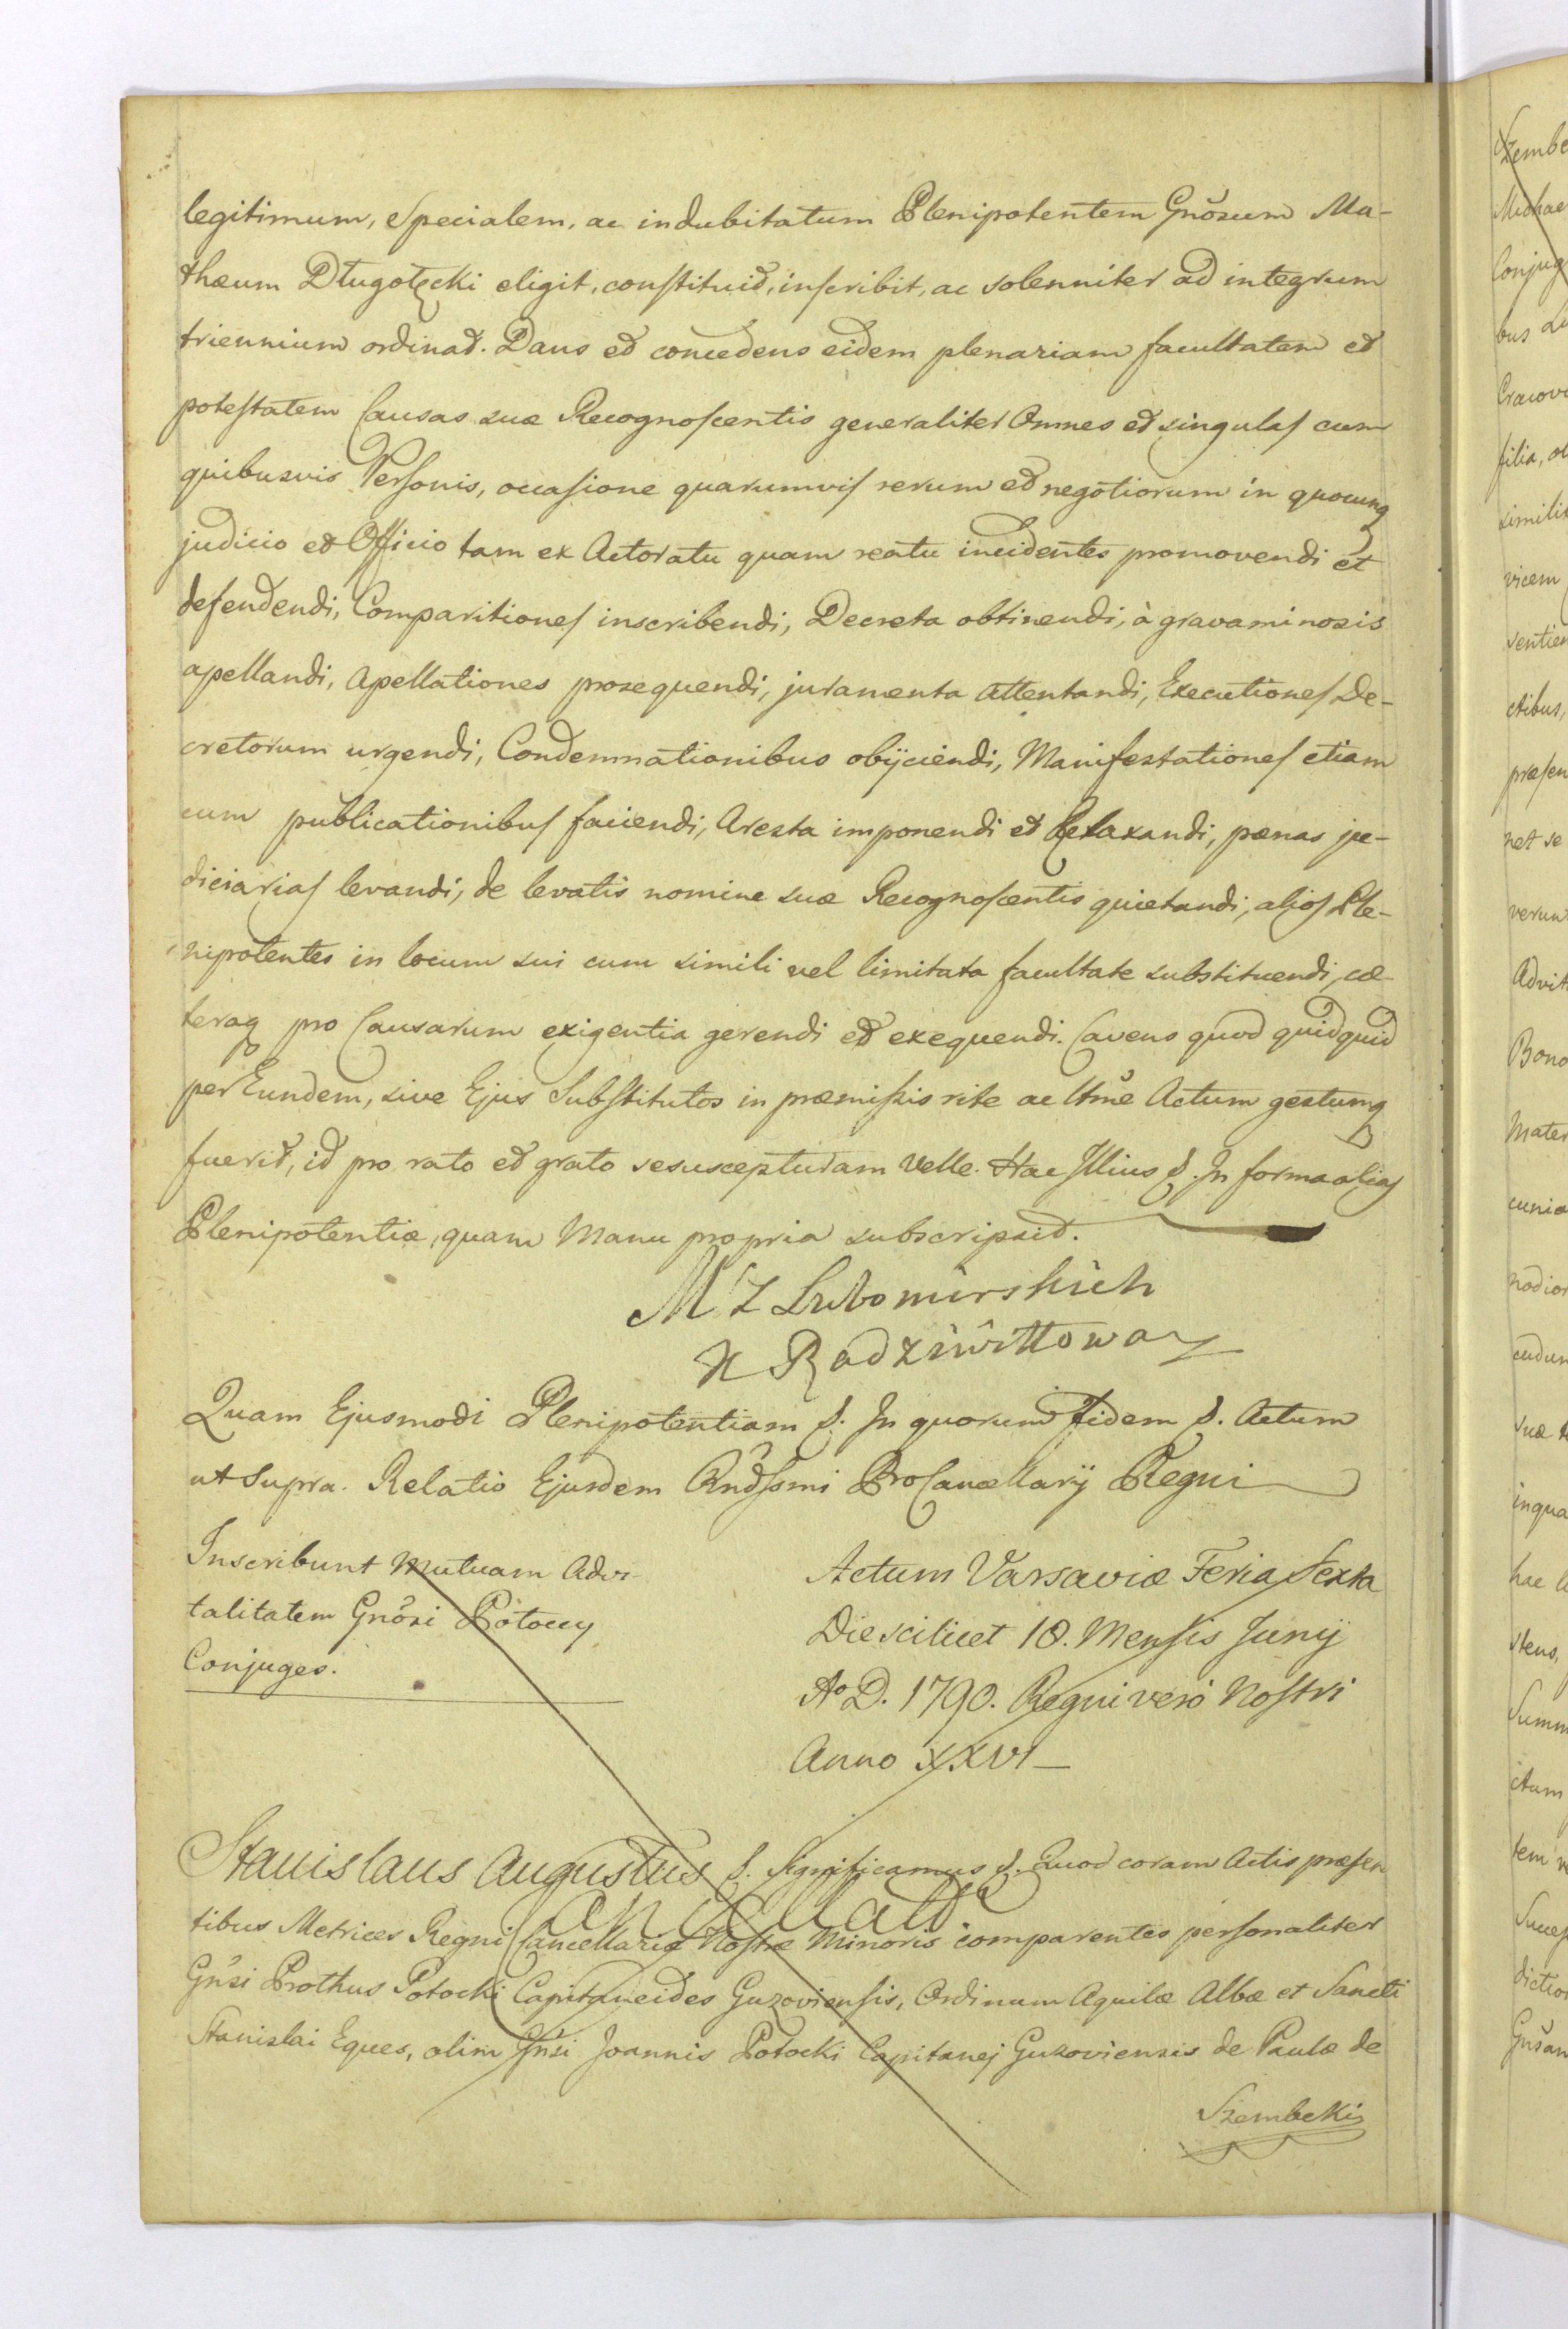 legitimum, Specialem, ac indubitatum Plenipotentem Gnosum Ma-
thæum Długołęcki eligit, constituit, inscribit, ac solenniter ad integrum
triennium ordinat. Dans et concedens eidem plenariam facultatem et
potestatem Causas suæ Recognoscentis generaliter Omnes et singulas cum
quibusvis Personis, occasione quarumvis rerum et negotiorum in quocunq
judicio et Officio tam ex Actoratu quam reatu incidentes promovendi et
defendendi, Comparitiones inscribendi, Decreta obtinendi, à gravaminosis
apellandi, Apellationes prosequendi, juramenta attentandi, Executiones De-
cretorum urgendi, Condemnationibus obijciendi, Manifestationes etiam
cum publicationibus faciendi, Aresta imponendi et Relaxandi, pænas ju-
diciarias levandi, de levatis nomine suæ Recognoscentis quietandi, alios Ple-
nipotentes in locum sui cum simili vel limitata facultate substituendi, cæ-
teraq pro Causarum exigentia gerendi et exequendi. Cavens quod quidquid
per Eundem, sive Ejus Substitutos in præmissis rite ac ltme Actum gestumq
fuerit, id pro rato et grato se suscepturam velle. Hac Illius &. In forma alias
Plenipotentiæ, quam Manu propria subscripsit.
M Z Lubomirskich
X Radziwiłłowa
Quam Ejusmodi Plenipotentiam &. In quorum Fidem &. Actum
ut Supra. Relatio Ejusdem Rndssmi ProCancellarij Regni
Inscribunt Mutuam Advi-
talitatem Gnosi Potoccy
Conjuges.
Actum Varsaviæ Feria Sexta
Die scilicet 18. Mensis Junij
Ao D. 1790. Regni vero Nostri
Anno XXVI
Stanislaus Augustus &. Significamus &. Quod coram Actis præsen
Cancellat
tibus Metrices Regni Cancellariæ Nostræ Minoris comparentes personaliter
Gnsi Prothus Potocki Capitaneides Guzoviensis, Ordinum Aquilæ Albæ et Sancti
Stanislai Eques, olim Gnsi Joannis Potocki Capitanej Guzoviensis de Paula de
Szembekis
Szembe
Michae
Conjug
bus
Cracovi
filia,
similit
vicem
sentien
ctibus,
præsen
net se
verum
Advit
Bono
Mater
cunia
nodior
cudum
suæ
inqua
hac
stens,
Summ
ctam
tem
Succes
diction
Gnsan